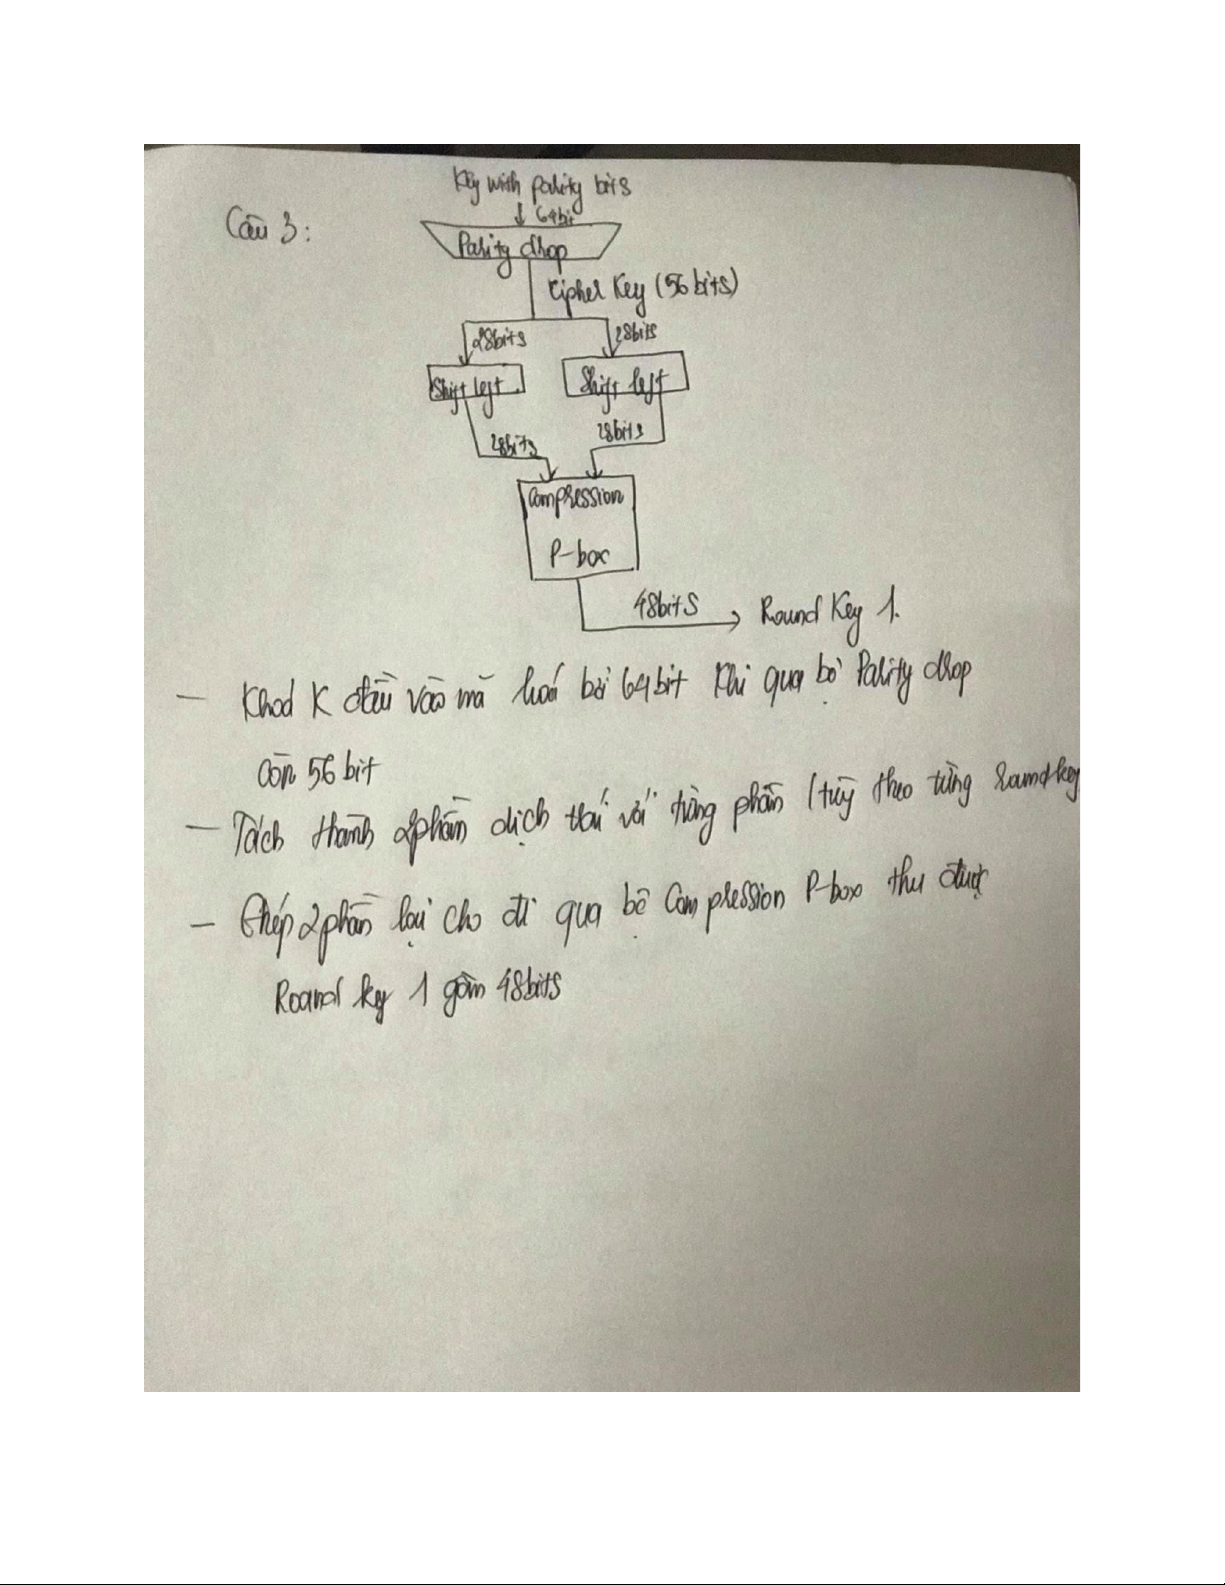 Key with parity bits
Câu 3:
64bit
Parity drop
Cipher Key (56 bits)
28bits 28bits
Shift left Shift left
28bits 28bits
Compression
P-box
48bits Round Key 1.
- Khoá K đầu vào mã hoá bởi 64bit khi qua bộ Parity drop
còn 56 bit
- Tách thành 2 phần dịch trái với từng phần (tuỳ theo từng round key
- Ghép 2 phần lại cho đi qua bộ Compression P-box thu được
Round key 1 gồm 48bits